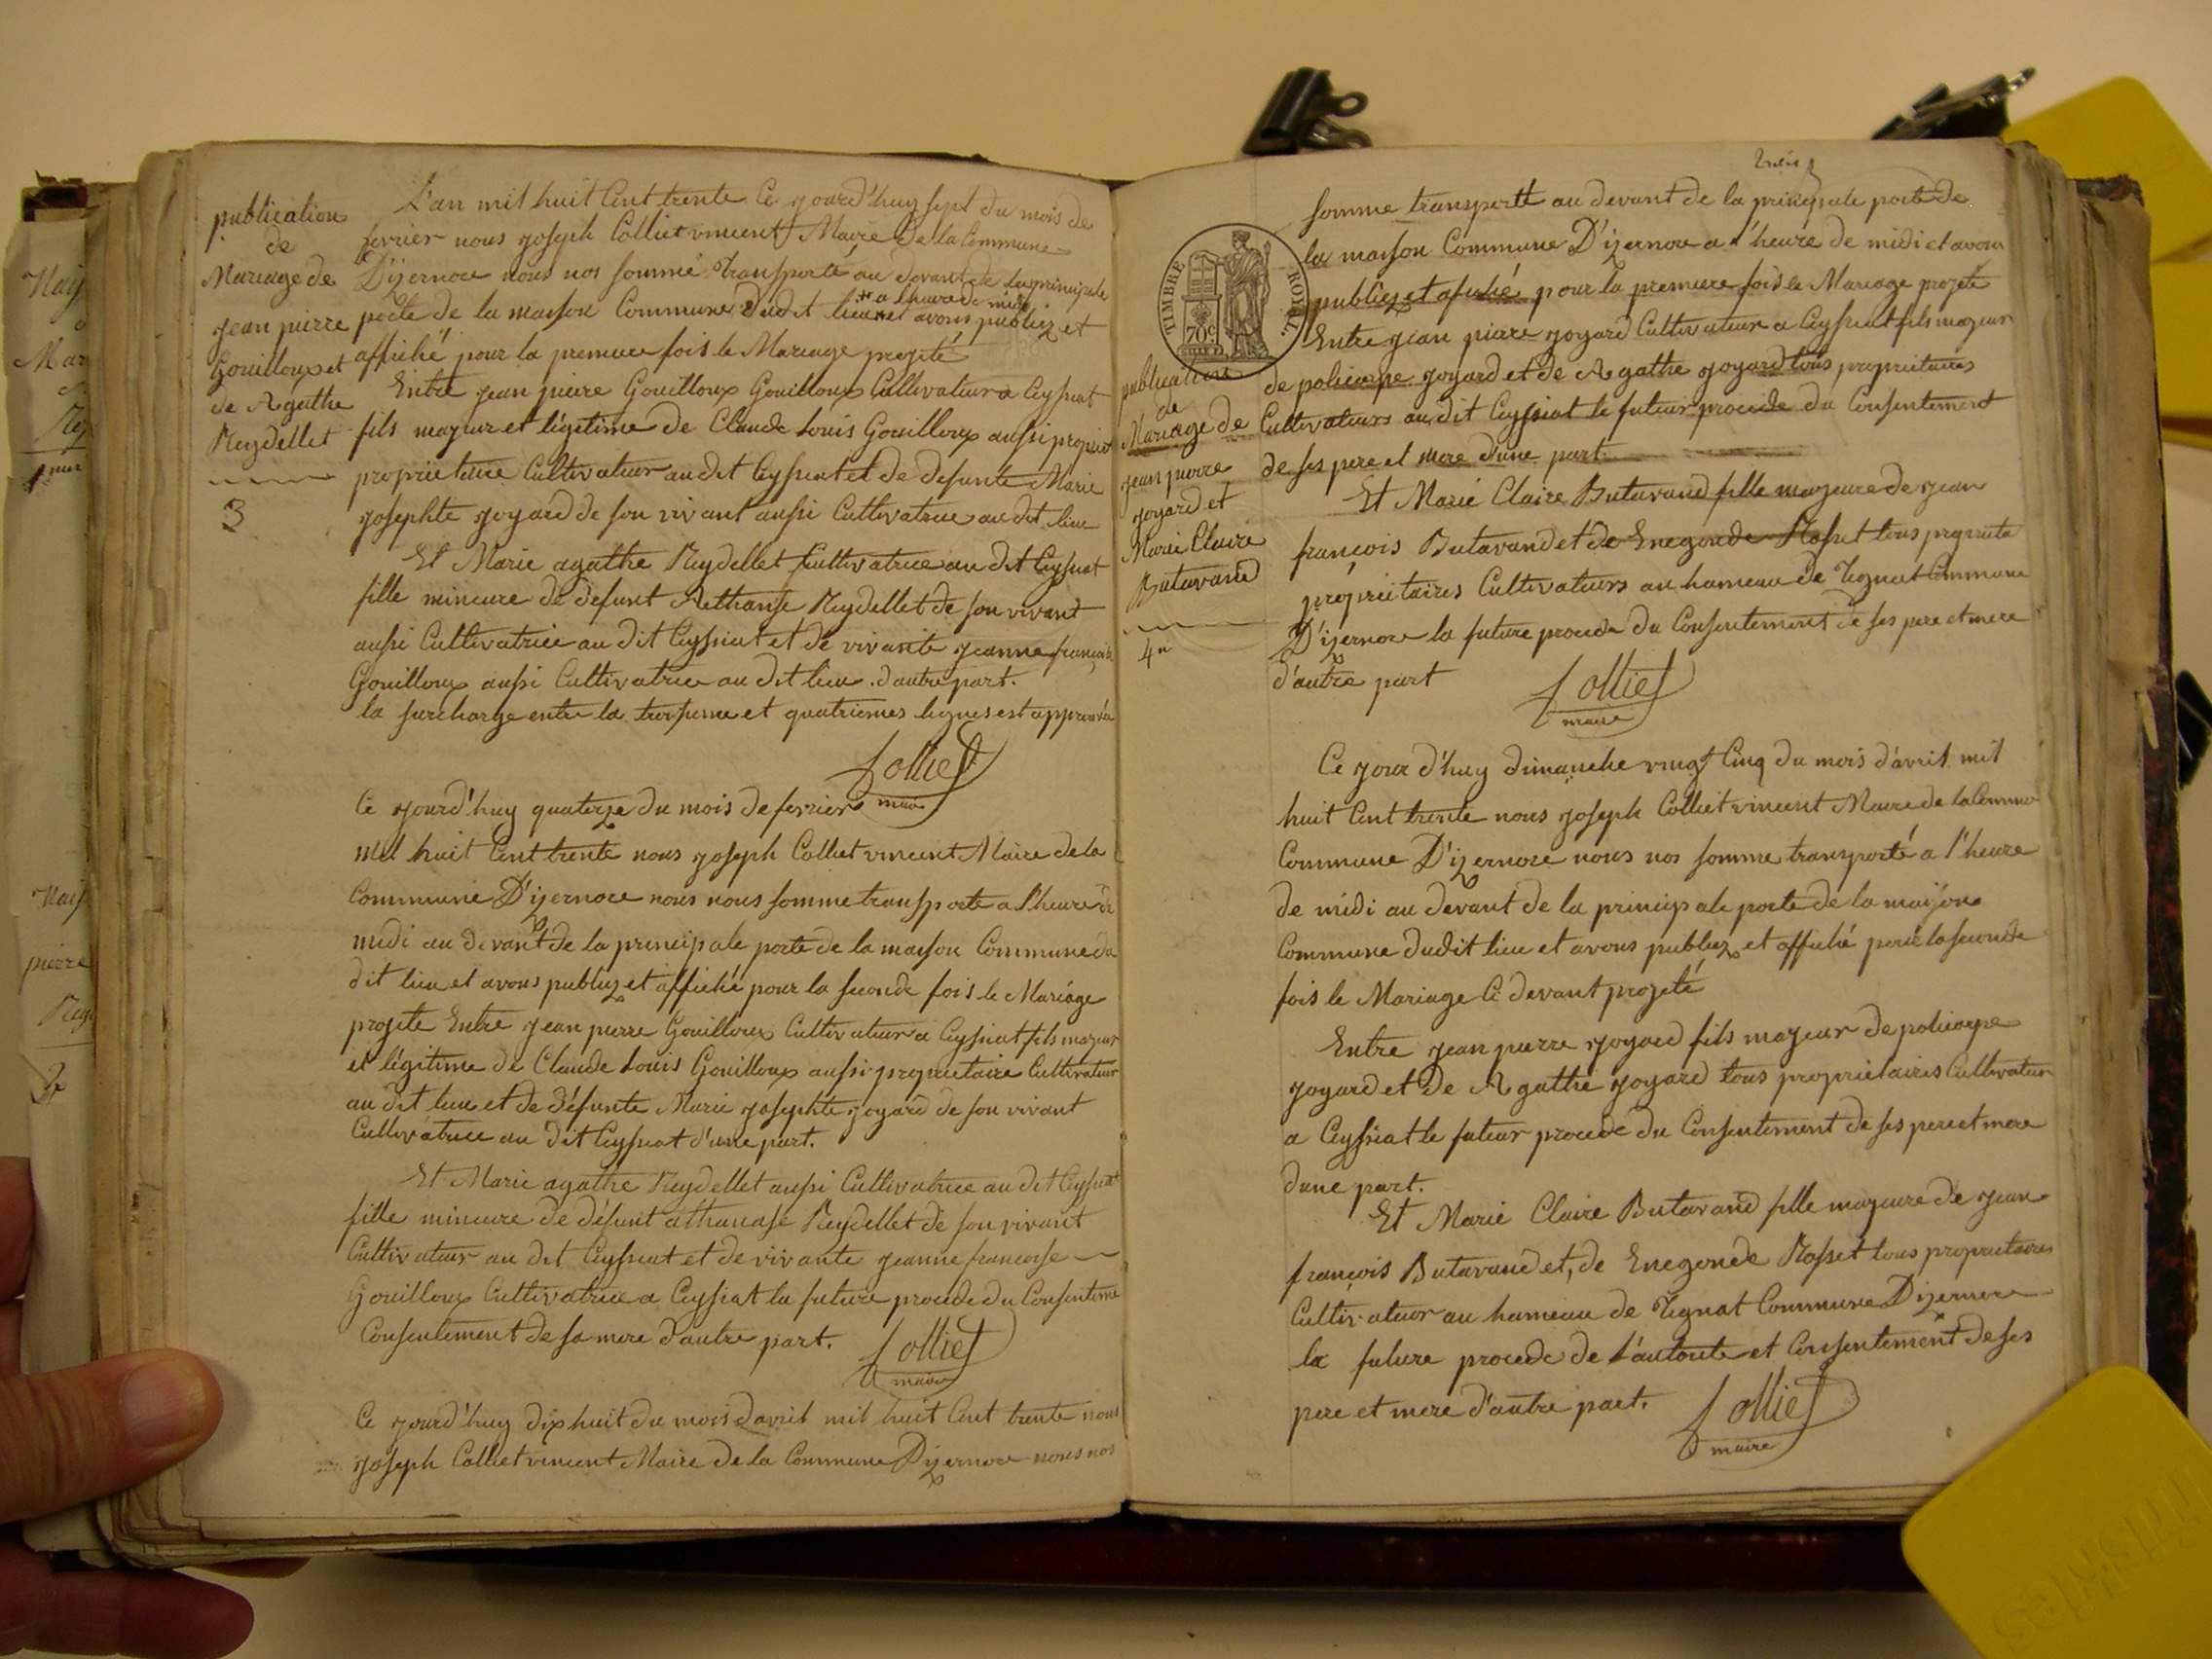 publication
de
Mariage de
jean pierre
Gouilloux et
de Agathe
Reydellet
3
L'an mil huit Cent trente Ce jourd'huy sept du mois de
fevrier nous joseph Colliet vincent Maire de la Commune
D'izernore nous nos sommé transporté au devant de la principale
porte de la maison Commune dudit lieu * a lheure de midi et avons publiez et
affiché pour la premiere fois le Mariage projeté
Entre jean pierre Gouilloux Gouilloux Cultivateur a Ceyssiat
fils majeur et légitime de Claude Louis Gouilloux aussi proprie
proprietaire Cultivateur audit Ceyssiat et de defunte Marie
josephte joyard de son vivant aussi Cultivatrice au dit lieu
Et Marie agathe Reydellet Cultivatrice au dit Ceyssiat
fille mineure de défunt Athanase Reydellet de son vivant
aussi Cultivatrice au dit Ceyssiat et de vivante jeanne françoise
Gouilloux aussi Cultivatrice au dit lieu d'autre part.
la surcharge entre la troisieme et quatriemes lignes est approuvée
Colliet
maire
Ce jourd'huy quatorze du mois de fevrier
mil huit Cent trente nous joseph Colliet vincent Maire de la
Commune D'izernore nous nous somme transporte a l'heure de
midi au devant de la principale porte de la maison Commune du
dit lieu et avons publiez et affiché pour la seconde fois le Mariage
projete Entre jean pierre Gouilloux Cultivateur a Ceyssiat fils majeur
et légitime de Claude Louis Gouilloux aussi proprietaire Cultivateur
au dit lieu et de défunte Marie josephte joyard de son vivant
Cultivatrice au dit Ceyssiat d'une part.
Et Marie agathe Reydellet aussi Cultivatrice au dit Ceyssiat
fille mineure de défunt athanase Reydellet de son vivant
Cultivateur au dit Ceyssiat et de vivante jeanne francoise
Gouilloux Cultivatrice a Ceyssiat la future procede du Consenteme
Consentement de sa mere d'autre part.
Colliet
maire
Ce jourd'huy dix huit du mois davril mil huit Cent trente nous
joseph Colliet vincent Maire de la Commune Dizernore nous nos
trois
TIMBRE ROYAL
70c
publication
de
Mariage de
jean pierre
joyard et
Marie Claire
Butavand
4e
somme transporté au devant de la principale porte de
la maison Commune D'izernore a l'heure de midi et avons
publiez et afiché pour la premiere fois le Mariage projete
Entre jean pierre joyard Cultivateur a Ceyssiat fils majeur
de policarpe joyard et de Agathe joyard tous proprietaires
Cultivateurs au dit Ceyssiat le futeur procede du Consentement
de ses pere et mere d'une part.
Et Marie Claire Butavand fille majeure de jean
françois Butavand et de Enegonde Rosset tous proprieta
proprietaires Cultivateurs au hameau de Tignat Commune
D'izernore la future procede du Consentement de ses pere et mere
d'autre part
Colliet
maire
Ce jour d'huy dimanche vingt Cinq du mois d'avril mil
huit Cent trente nous joseph Colliet vincent Maire de la Commu
Commune D'izernore nous nos somme transporté a l'heure
de midi au devant de la principale porte de la maison
Commune dudit lieu et avons publiez et affiché pour la seconde
fois le Mariage Ci devant projeté
Entre jean pierre joyard fils majeur de policarpe
joyard et de Agathe joyard tous proprietaires Cultivateur
a Ceyssiat le futeur procede du Consentement de ses pere et mere
dune part.
Et Marie Claire Butavand fille majeure de jean
françois Butavand et, de Enegonde Rosset tous proprietaires
Cultivateur au hameau de Tignat Commune Dizernore
la future procede de l'autorite et Consentement de ses
pere et mere d'autre part.
Colliet
maire